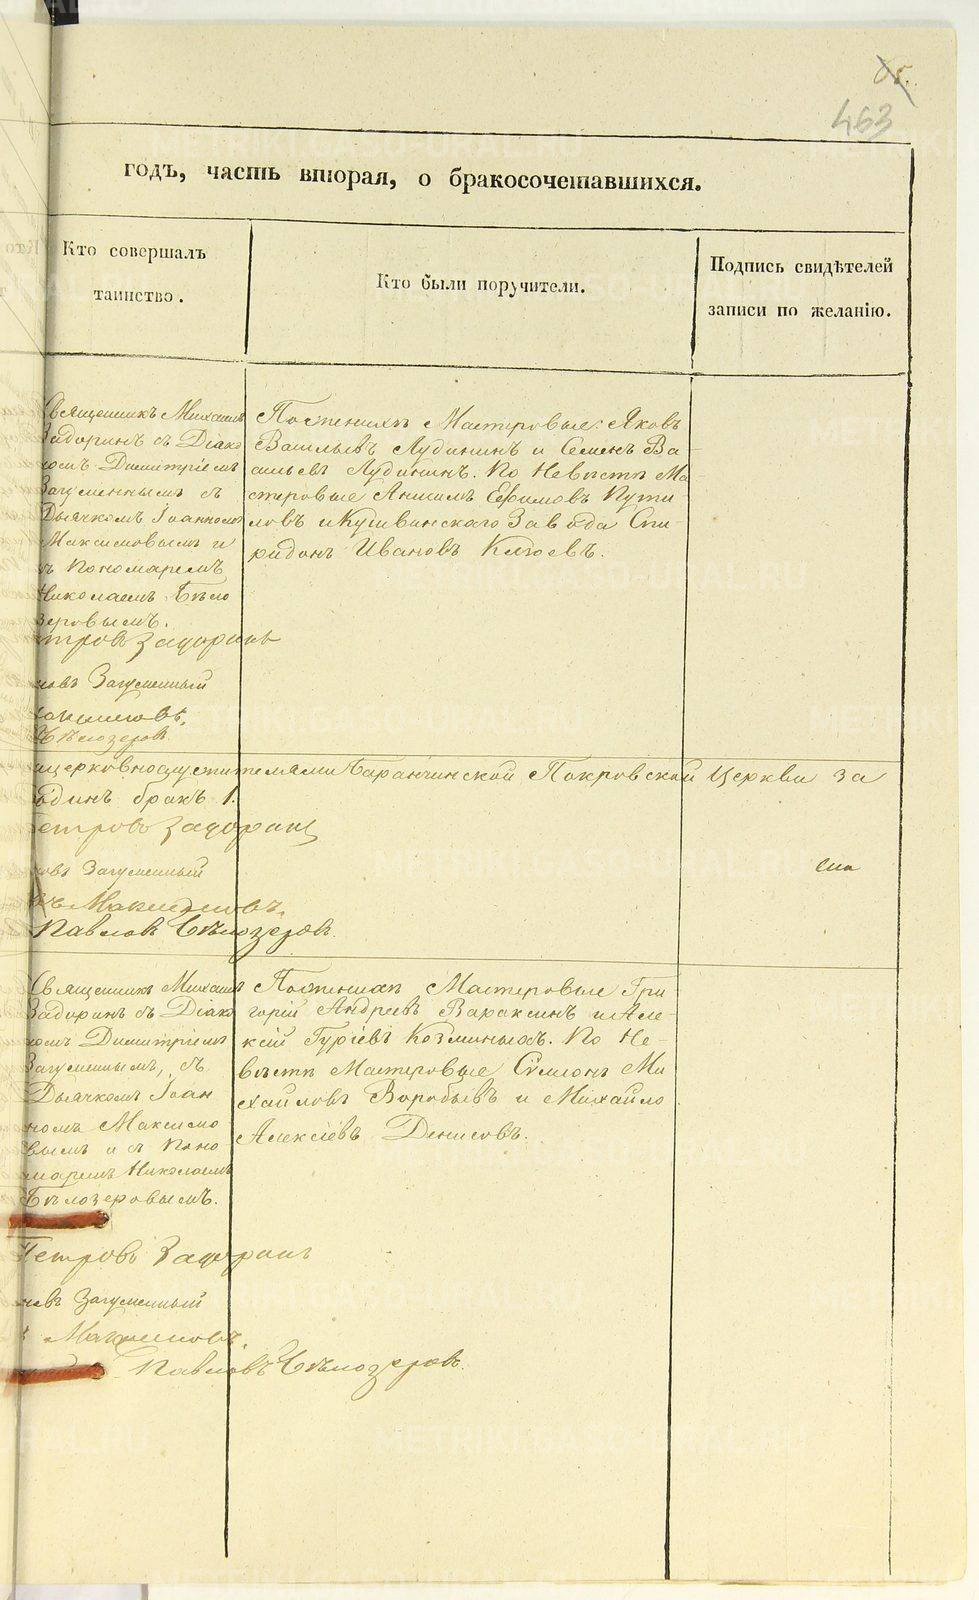 463
годъ, часть вторая, о бракосочетавшихся.
Кто совершалъ
таинство.
Кто были поручители.
Подпись свидѣтелей
записи по желанію.
Священникъ Михаилъ
Задоринъ съ Діако
номъ Димитріемъ
Загуменнымъ съ
Дьячкомъ Іоанномъ
Максимовымъ и
съ Пономаремъ
Николаемъ Бѣло
зеровымъ.
Петровъ Задоринъ
новъ Загуменный
Максимовъ.
Бѣлозеровъ
По женихѣ Мастеровые: Яковъ
Васильевъ Лудининъ и Семенъ Ва
сильевъ Лудининъ. По Невѣстѣ Ма
стеровые Анисимъ Ефимовъ Пути
ловъ и Кушвинскаго Завода Спи
ридонъ Ивановъ Клюевъ.
священноцерковнослужителями Баранчинской Покровской Церкви за
одинъ бракъ 1.
Петровъ Задоринъ
новъ Загуменный
Максимовъ.
Павловъ Бѣлозеровъ.
Священникъ Михаилъ
Задоринъ съ Діако
номъ Димитріемъ
Загуменнымъ, съ
Дьячкомъ Іоан
номъ Максимо
вымъ и съ Поно
маремъ Николаемъ
Бѣлозеровымъ.
Петровъ Задоринъ
новъ Загуменный
Максимовъ.
Павловъ Бѣлозеровъ.
По женихѣ Мастеровые Гри
горій Андреевъ Вараксинъ и Але
ксій Гуріевъ Козминыхъ. По Не
вѣстѣ Мастеровые Сѵмеонъ Ми
хайловъ Воробьевъ и Михайло
Алексіевъ Денисовъ.